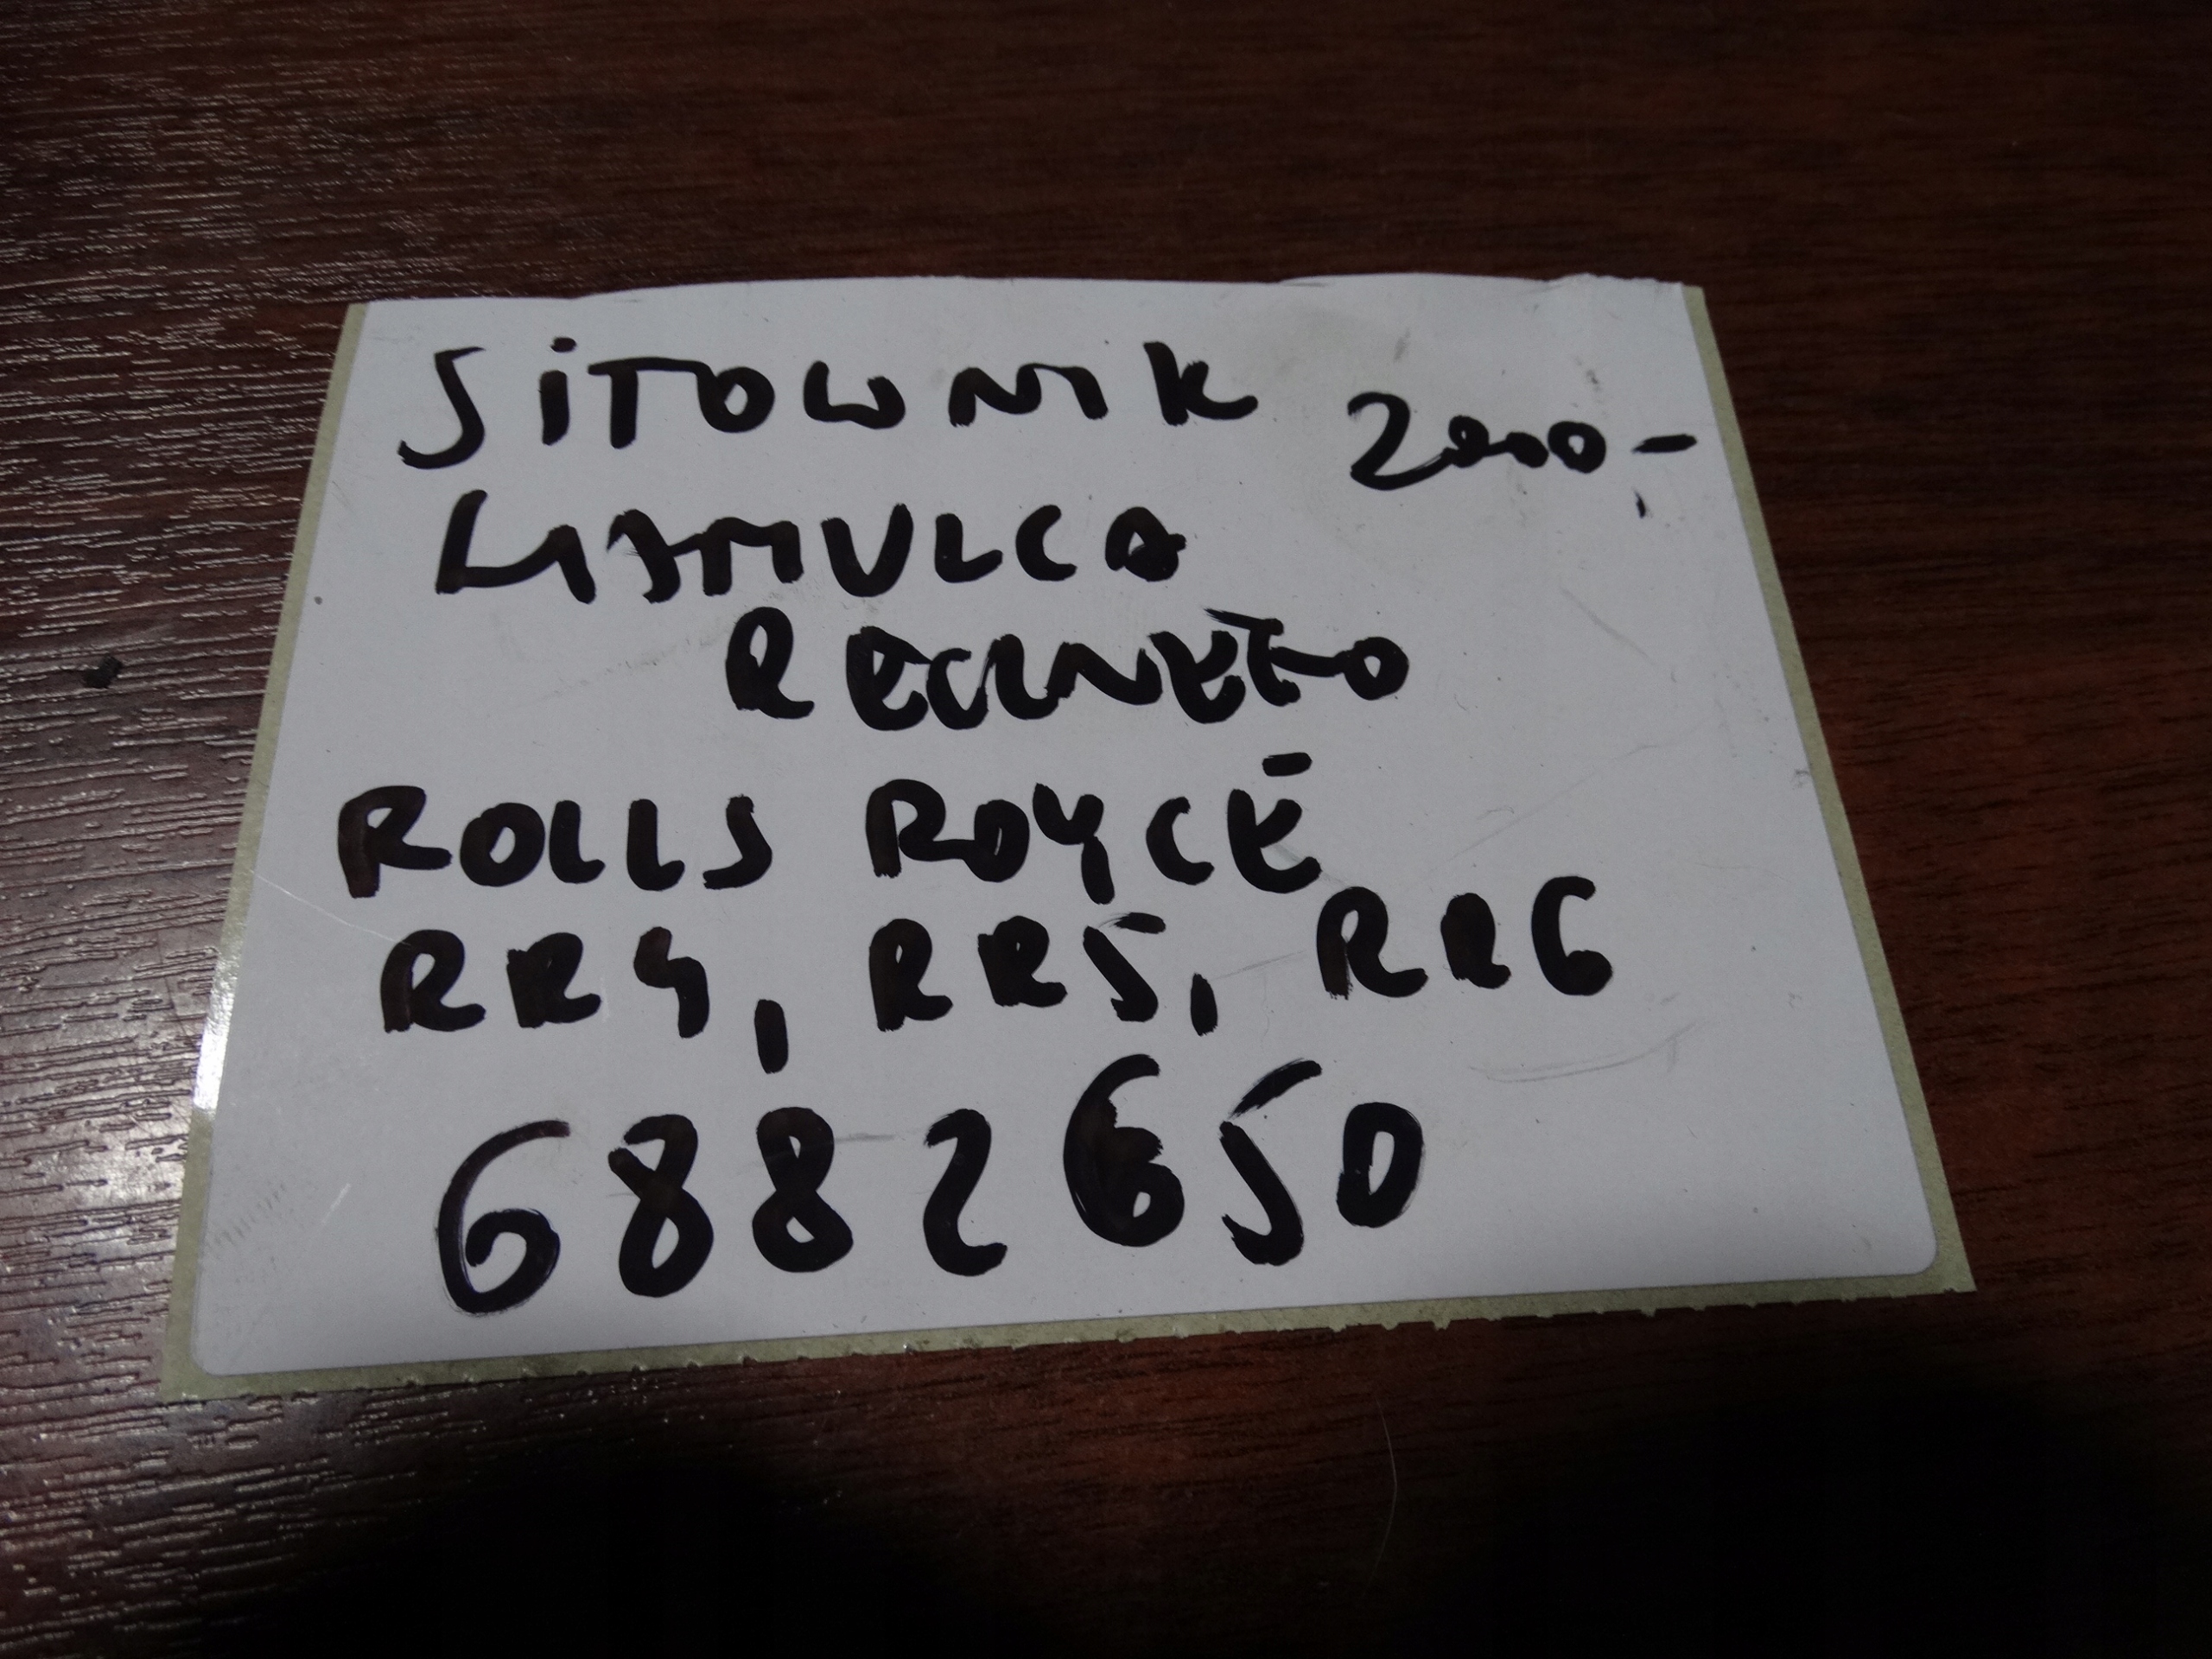 SiTOWNIK 2000,-
HAMULCA
RECZNEGO
ROLLS ROYCE
RR4, RR5, RR6
6882650